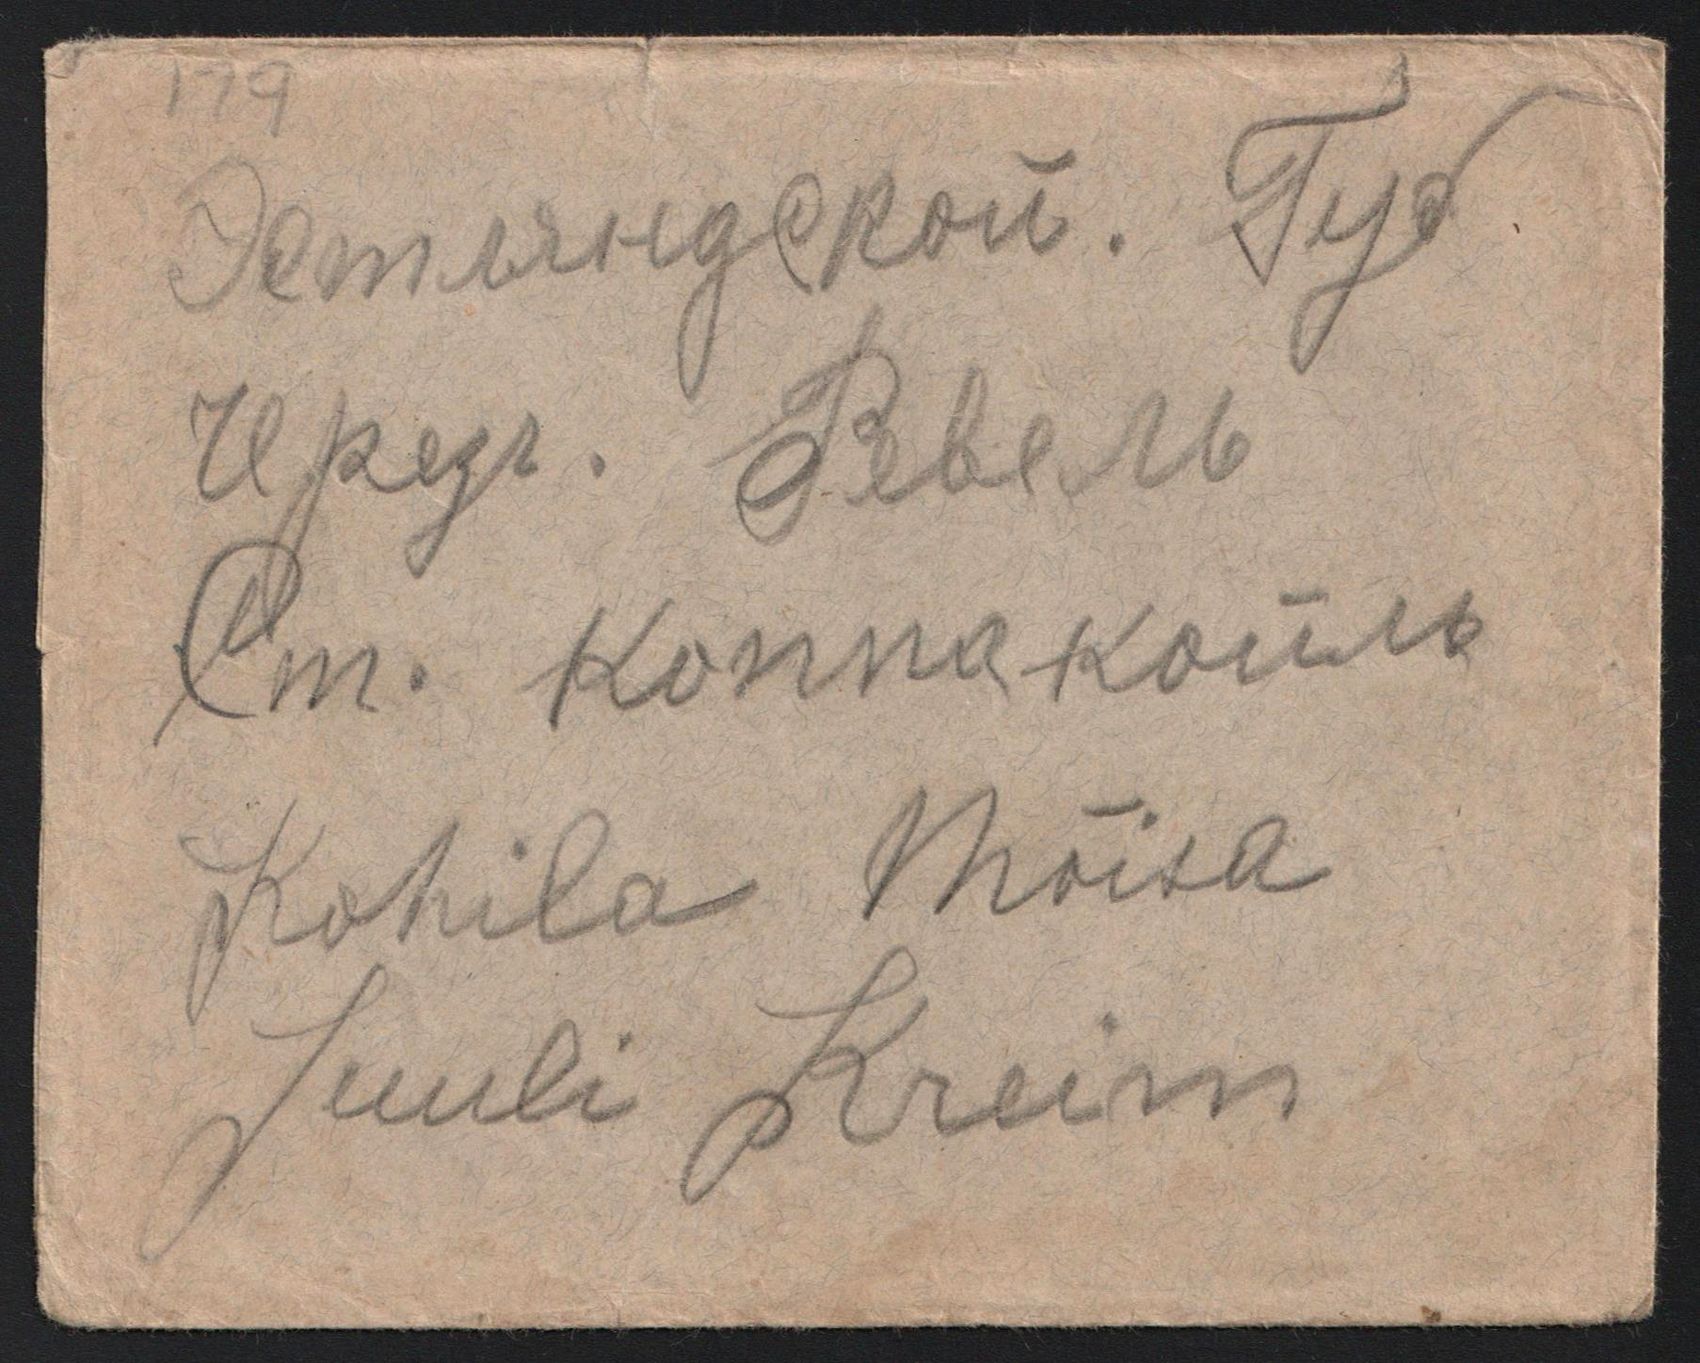 179
Эстляндской. Губ.
Чрезъ. Ревель
Ст. Коппакойль
Kohila Mõisa
Juuli Kreim